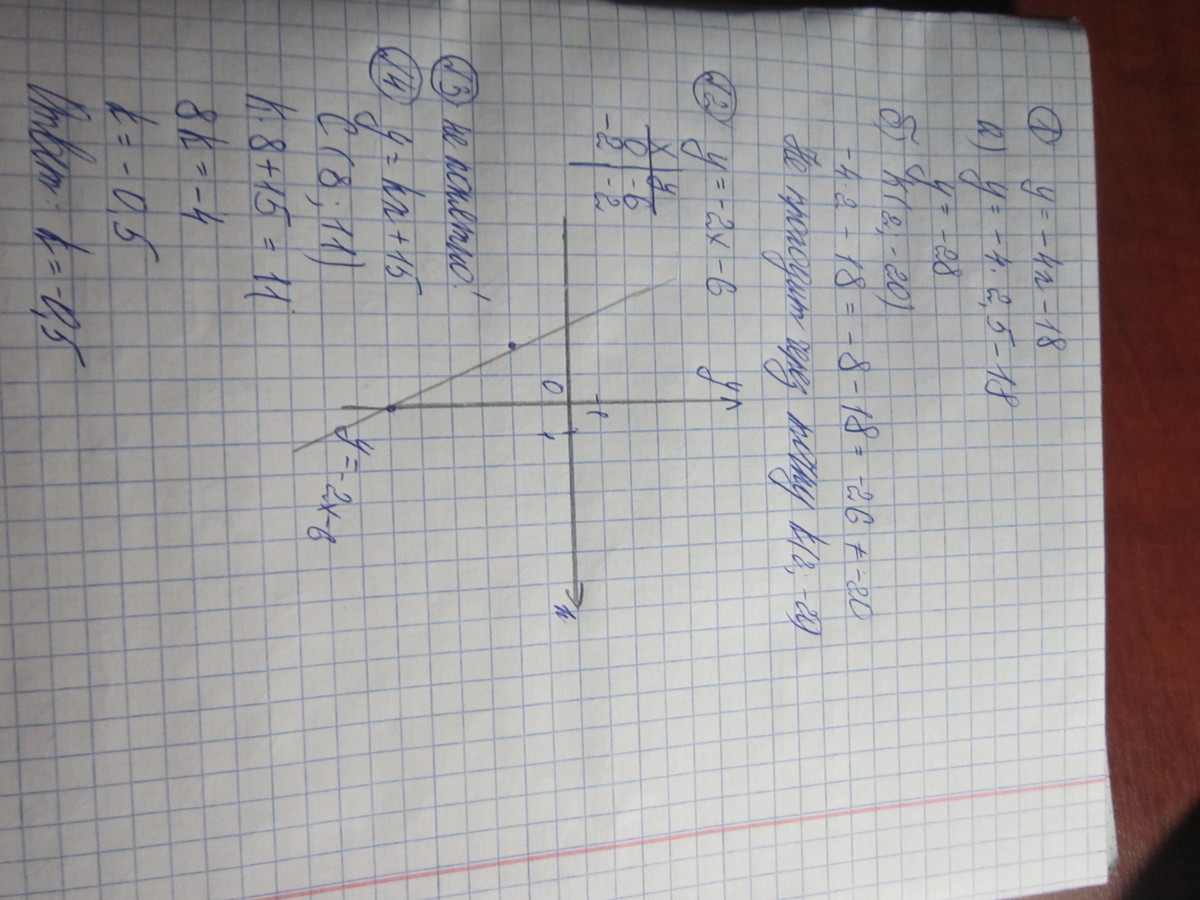 1 y = -4x - 18
а) y = -4 · 2,5 - 18
y = -28
б) K(2; -20)
-4 · 2 - 18 = -8 - 18 = -26 ≠ -20
Не проходит через точку K(2; -20)
№2 y = -2x - 6
x | y
0 | -6
-2 | -2
y
1
0
1
x
y = -2x - 6
№3 не понятно!
№4 y = kx + 15
C (8; 11)
k · 8 + 15 = 11
8k = -4
k = -0,5
Ответ: k = -0,5